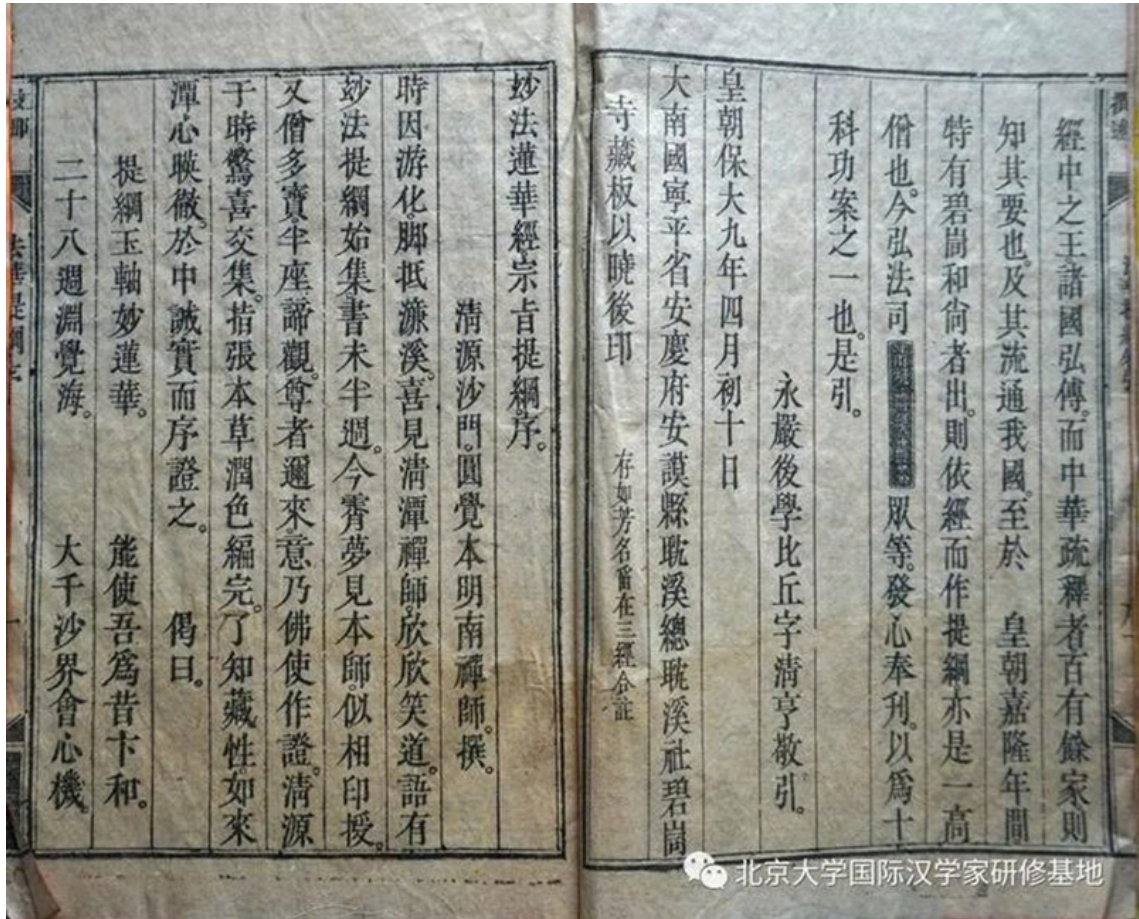 經中之王諸國弘傳。而中華疏釋者百有餘家則
知其要也。及其流通我國。至於 皇朝嘉隆年間
特有碧崗和尙者出。則依經而作提綱亦是一高
僧也。今弘法司 眾等。發心奉刊。以爲十
科功案之一也。是引。
永嚴後學比丘字清亨敬引。
皇朝保大九年四月初十日
大南國寧平省安慶府安謨縣耽溪總耽溪社碧崗
寺藏板以曉後印 存如芳名畱在三經合註
玅法蓮華經宗旨提綱。序。
清源沙門。圓覺本明南禪師。撰。
時因游化。脚抵濂溪。喜見清潭禪師。欣欣笑道。語有
玅法提綱始集書未半週。今霄夢見本師。似相印授。
又僧多寶半座諦觀。尊者邇來。意乃佛使作證。清源
于時驚喜交集。指張本草潤色編完。了知藏性。如來
潭心映徹。於中誠實而序證之。 偈曰。
提綱玉軸妙蓮華。 能使吾爲昔卞和。
二十八週淵覺海。 大千沙界會心機。
法華提綱序
北京大学国际汉学家研修基地